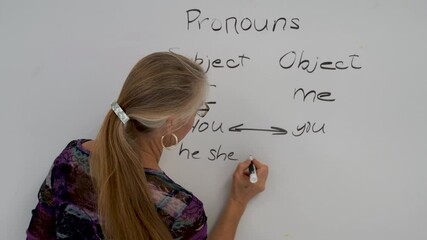 Pronouns
Subject Object
me
You ↔ you
he she